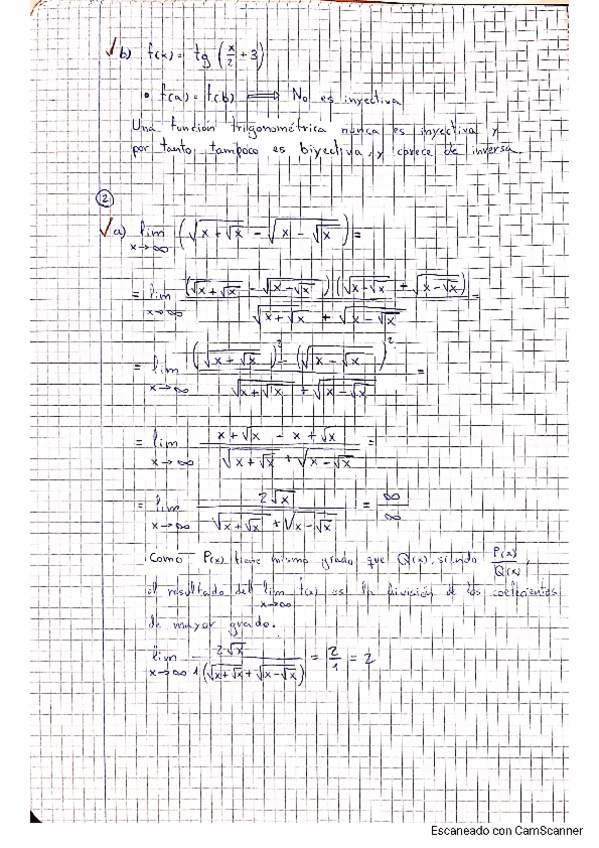 ✓ b) f(x) = tg (x/2 + 3)
• f(a) = f(b) ⟹ No es inyectiva
Una función trigonométrica nunca es inyectiva y
por tanto, tampoco es biyectiva, y carece de inversa.
②
✓ a) lim x→∞ (√(x + √x) - √(x - √x)) =
= lim x→∞ (√(x+√x) - √(x-√x)) (√(x-√x) + √(x-√x)) / (√(x+√x) + √(x-√x)) =
= lim x→∞ ((√(x+√x))² - (√(x-√x))²) / (√(x+√x) + √(x-√x)) =
= lim x→∞ (x+√x - x+√x) / (√(x+√x) + √(x-√x)) =
= lim x→∞ 2√x / (√(x+√x) + √(x-√x)) = ∞/∞
Como P(x) tiene mismo grado que Q(x), siendo P(x)/Q(x),
el resultado del lim x→∞ f(x) es la división de los coeficientes
de mayor grado.
lim x→∞ 2√x / 1(√(x+√x) + √(x-√x)) = 2/1 = 2
Escaneado con CamScanner